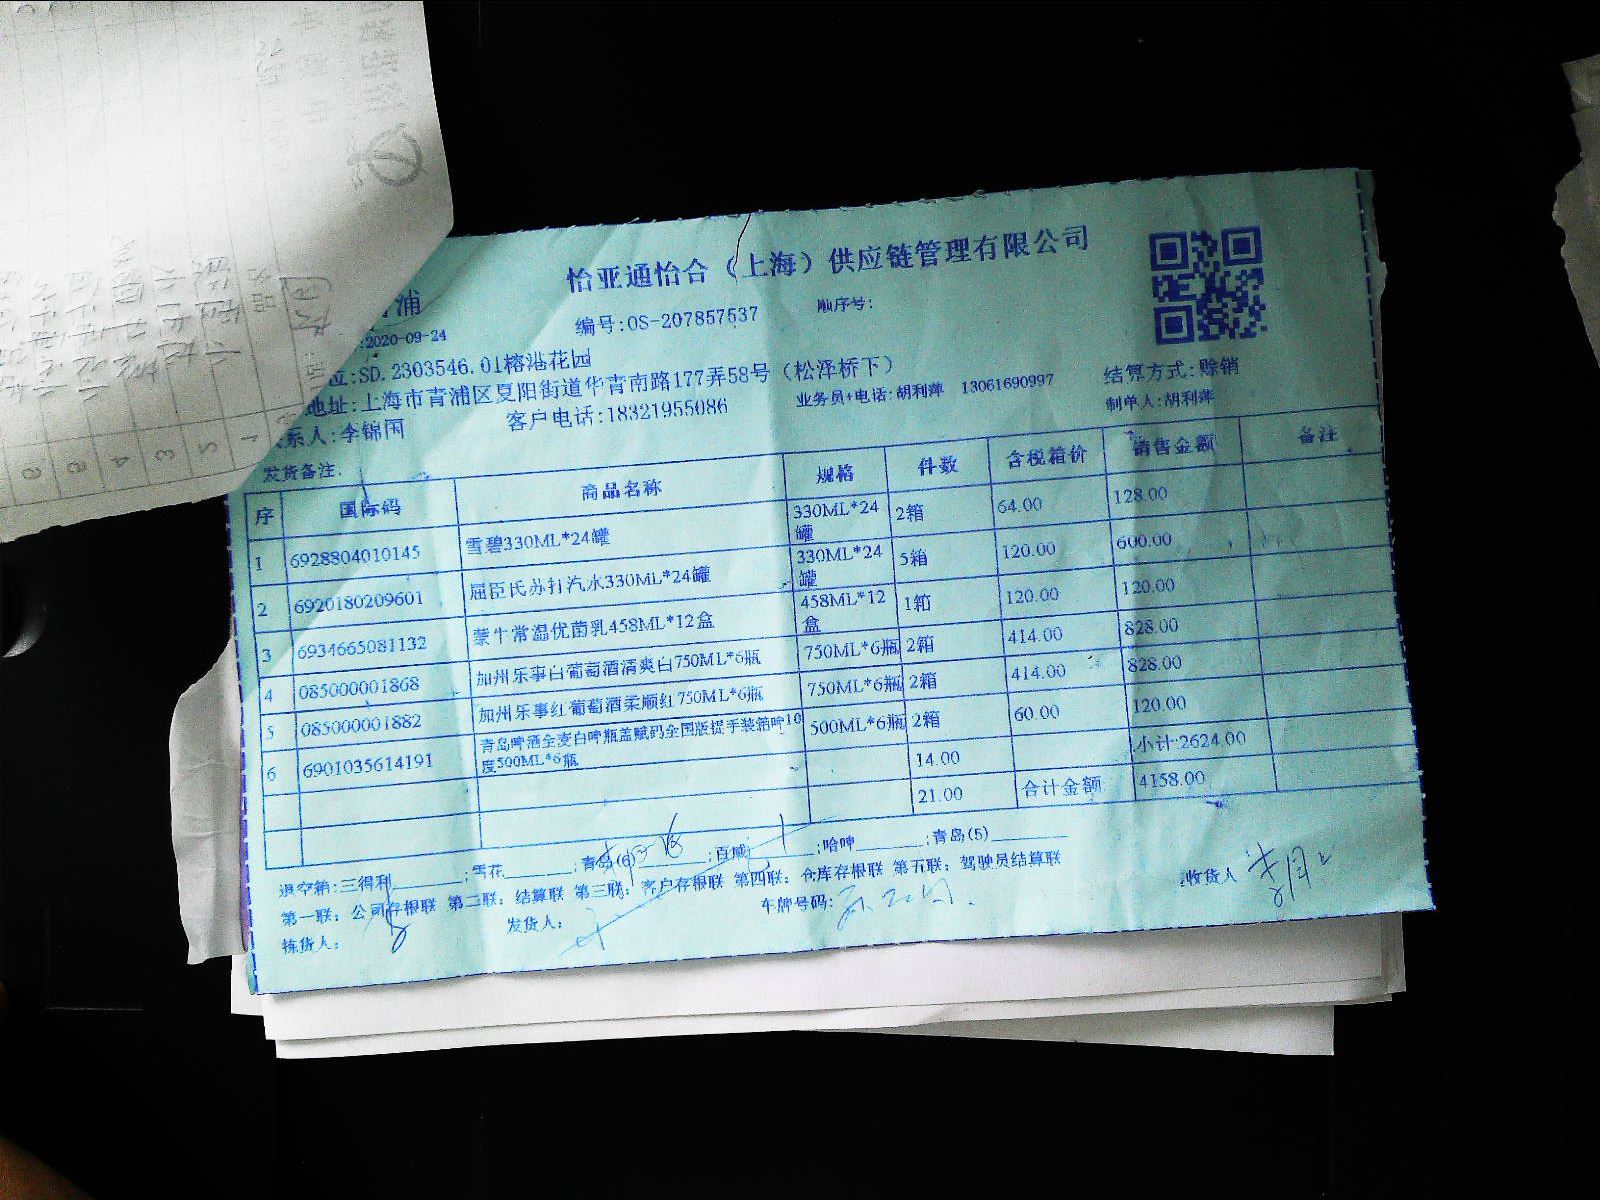 怡亚通怡合（上海）供应链管理有限公司
浦
编号:OS-207857537
顺序号:
:2020-09-24
位:SD.2303546.01榕港花园
地址:上海市青浦区夏阳街道华青南路177弄58号（松泽桥下）
业务员+电话:胡利萍 13061690997
结算方式:赊销
系人:李锦国
客户电话:18321955086
制单人:胡利萍
发货备注:
序 国际码 商品名称 规格 件数 含税箱价 销售金额 备注
1 6928804010145 雪碧330ML*24罐 330ML*24罐 2箱 64.00 128.00
2 6920180209601 屈臣氏苏打汽水330ML*24罐 330ML*24罐 5箱 120.00 600.00
3 6934665081132 蒙牛常温优菌乳458ML*12盒 458ML*12盒 1箱 120.00 120.00
4 085000001868 加州乐事白葡萄酒清爽白750ML*6瓶 750ML*6瓶 2箱 414.00 828.00
5 085000001882 加州乐事红葡萄酒柔顺红750ML*6瓶 750ML*6瓶 2箱 414.00 828.00
6 6901035614191 青岛啤酒全麦白啤瓶盖赋码全国版提手装箱啤10度500ML*6瓶 500ML*6瓶 2箱 60.00 120.00
14.00 小计:2624.00
21.00 合计金额 4158.00
退空箱:三得利______;雪花______;青岛(6)______;百威______;哈啤______;青岛(5)______
第一联：公司存根联 第二联：结算联 第三联：客户存根联 第四联：仓库存根联 第五联：驾驶员结算联
拣货人：
发货人：
车牌号码:
收货人